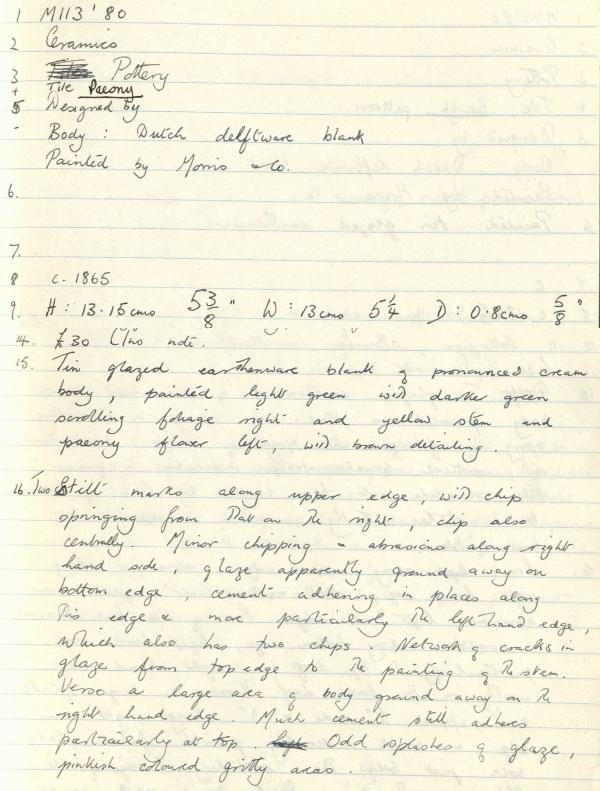 1 M113 '80
2 Ceramics
3 Pottery
+ Tile Paeony
5 Designed by
- Body : Dutch delftware blank
Painted by Morris & Co.
6.
7.
8 c. 1865
9. H : 13.15cms 5 3/8 " W : 13cms 5 1/4 D : 0.8cms 5/8 "
14. £30
15. Tin glazed earthenware blank of pronounced cream
body, painted light green with darker green
scrolling foliage right and yellow stem and
paeony flower left, with brown detailing.
16. Two Stilt marks along upper edge, with chip
springing from that on the right, chip also
centrally. Minor chipping & abrasions along right
hand side, glaze apparently ground away on
bottom edge, cement adhering in places along
this edge & more particularly the left hand edge,
which also has two chips. Network of cracks in
glaze from top edge to the painting of the stem.
Verso a large area of body ground away on the
right hand edge. Much cement still adheres
particularly at top. Odd splashes of glaze,
pinkish coloured gritty areas.